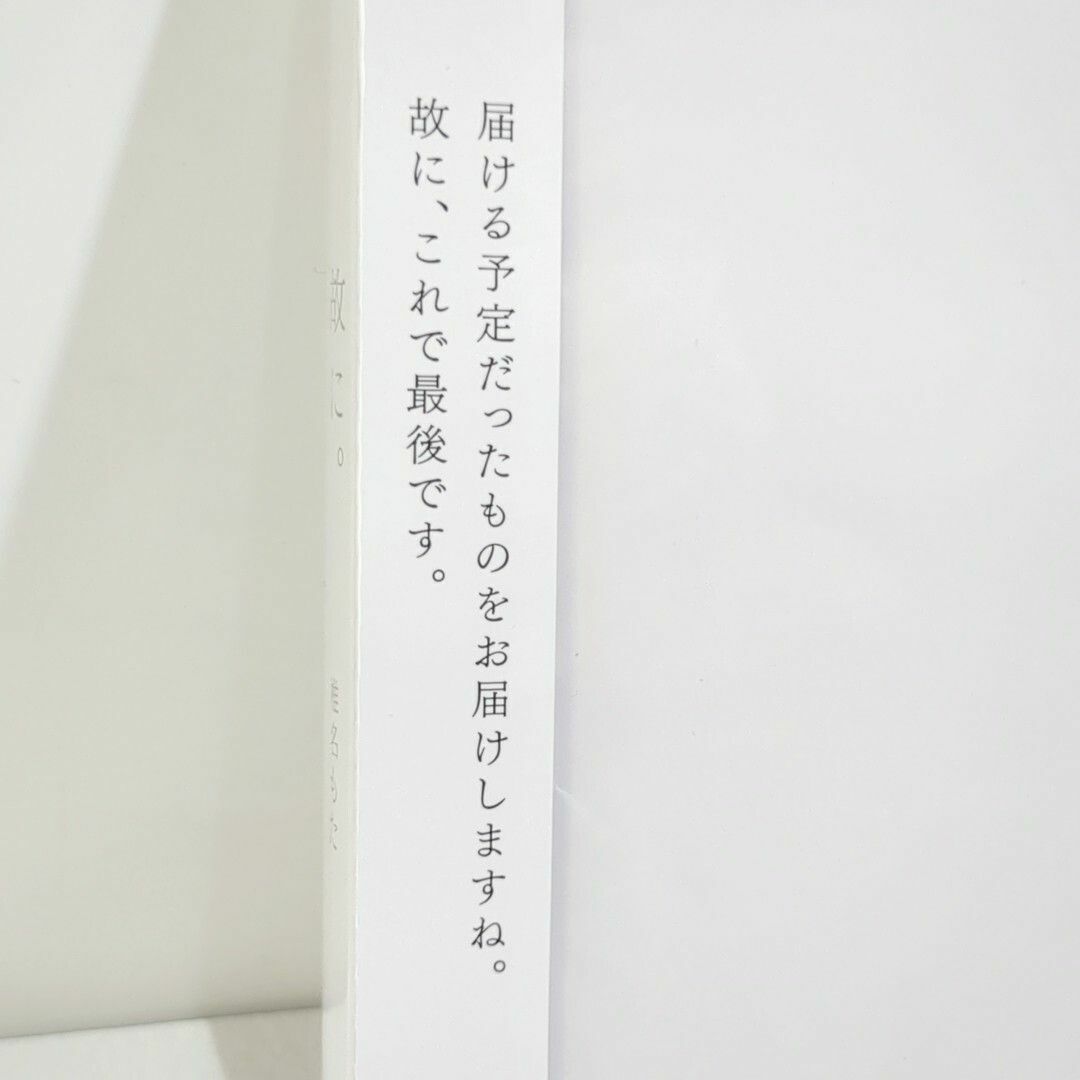 届ける予定だったものをお届けしますね。
故に、これで最後です。
故に。